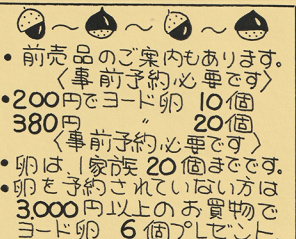 • 前売品のご案内もあります。
〈事前予約必要です〉
•200円でヨード卵 10個
380円 〃 20個
〈事前予約必要です〉
• 卵は、1家族 20個までです。
•卵を予約されていない方は
3,000円以上のお買物で
ヨード卵 6個プレゼント